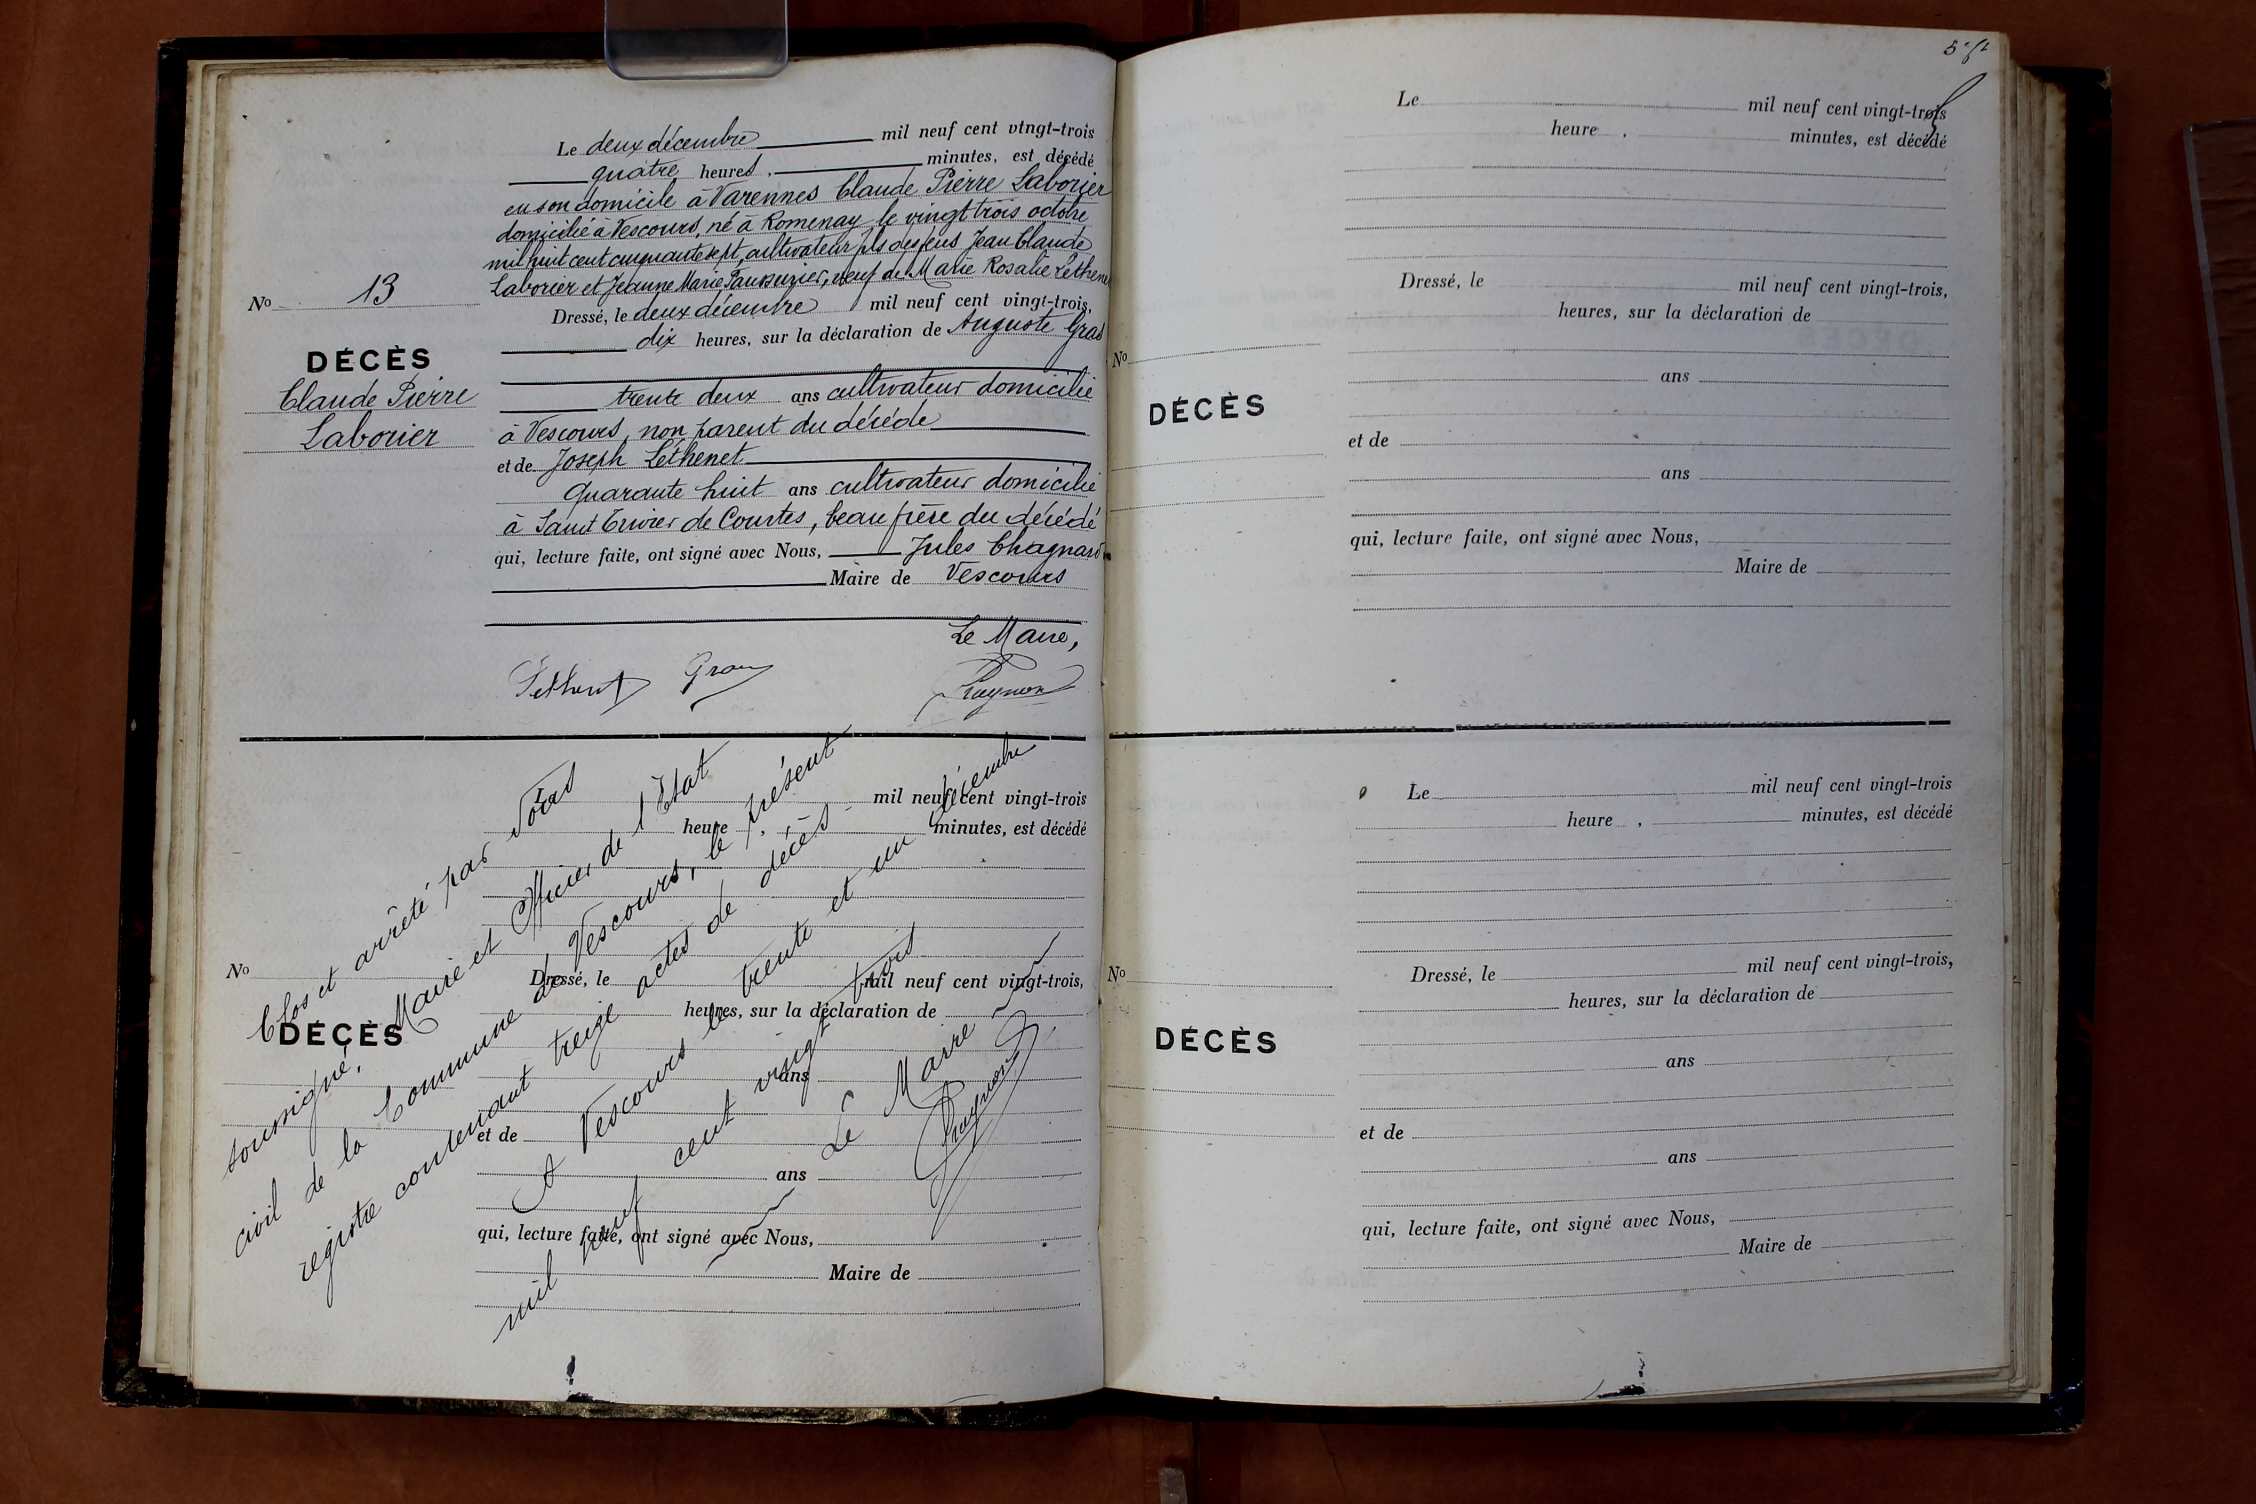 Le deux décembre mil neuf cent vingt-trois
quatre heures, minutes, est décédé
en son domicile à Varennes Claude Pierre Laborier
domicilié à Vescours, né à Romenay le vingt trois octobre
mil huit cent cinquante sept, cultivateur fils des feus Jean Claude
Laborier et Jeanne Marie veuf de Marie Rosalie Léthenet
Dressé, le deux décembre mil neuf cent vingt-trois,
dix heures, sur la déclaration de Auguste Gras
trente deux ans cultivateur domicilié
à Vescours, non parent du décédé
et de Joseph Léthenet
quarante huit ans cultivateur domicilié
à Saint Trivier de Courtes, beau frère du décédé
qui, lecture faite, ont signé avec Nous, Jules Chagnard
Maire de Vescours
Le Maire,
Léthenet Gras
No 13
DÉCÈS
Claude Pierre
Laborier
mil neuf cent vingt-trois
heure , minutes, est décédé
No
Dressé, le mil neuf cent vingt-trois,
heures, sur la déclaration de
DÉCÈS
ans
et de
ans
qui, lecture faite, ont signé avec Nous,
Maire de
Clos et arrêté par Nous
soussigné, Maire et Officier de l'Etat
civil de la Commune de Vescours, le présent
registre contenant treize actes de décès
A Vescours le trente et un décembre
mil neuf cent vingt trois
Le Maire
Le mil neuf cent vingt-trois
heure , minutes, est décédé
Dressé, le mil neuf cent vingt-trois,
heures, sur la déclaration de
No
ans
DÉCÈS
et de
ans
qui, lecture faite, ont signé avec Nous,
Maire de
Le mil neuf cent vingt-trois
heure , minutes, est décédé
No
Dressé, le mil neuf cent vingt-trois,
heures, sur la déclaration de
DÉCÈS
ans
et de
ans
qui, lecture faite, ont signé avec Nous,
Maire de